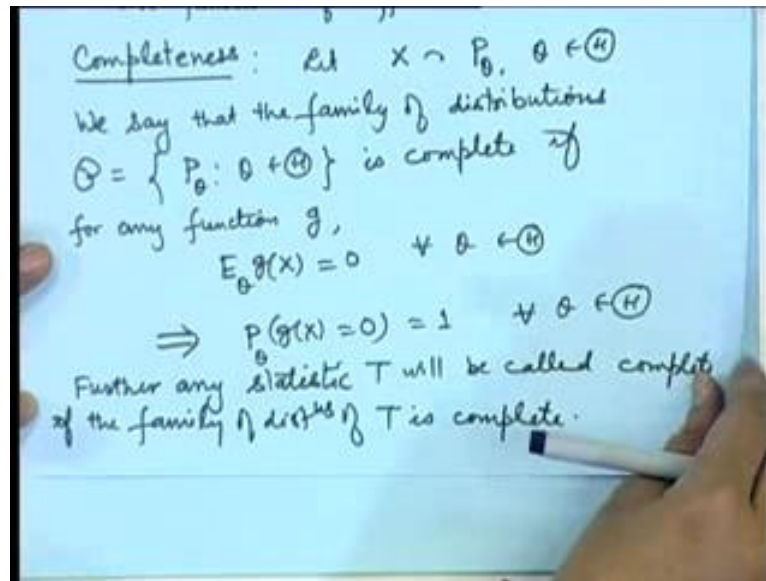 Completeness : Let X ~ P_θ, θ ∈ Ⓗ
We say that the family of distributions
𝒫 = { P_θ : θ ∈ Ⓗ } is complete if
for any function g,
E_θ g(X) = 0 ∀ θ ∈ Ⓗ
⇒ P_θ (g(X) = 0) = 1 ∀ θ ∈ Ⓗ
Further any statistic T will be called complete
if the family of dist^ns of T is complete.